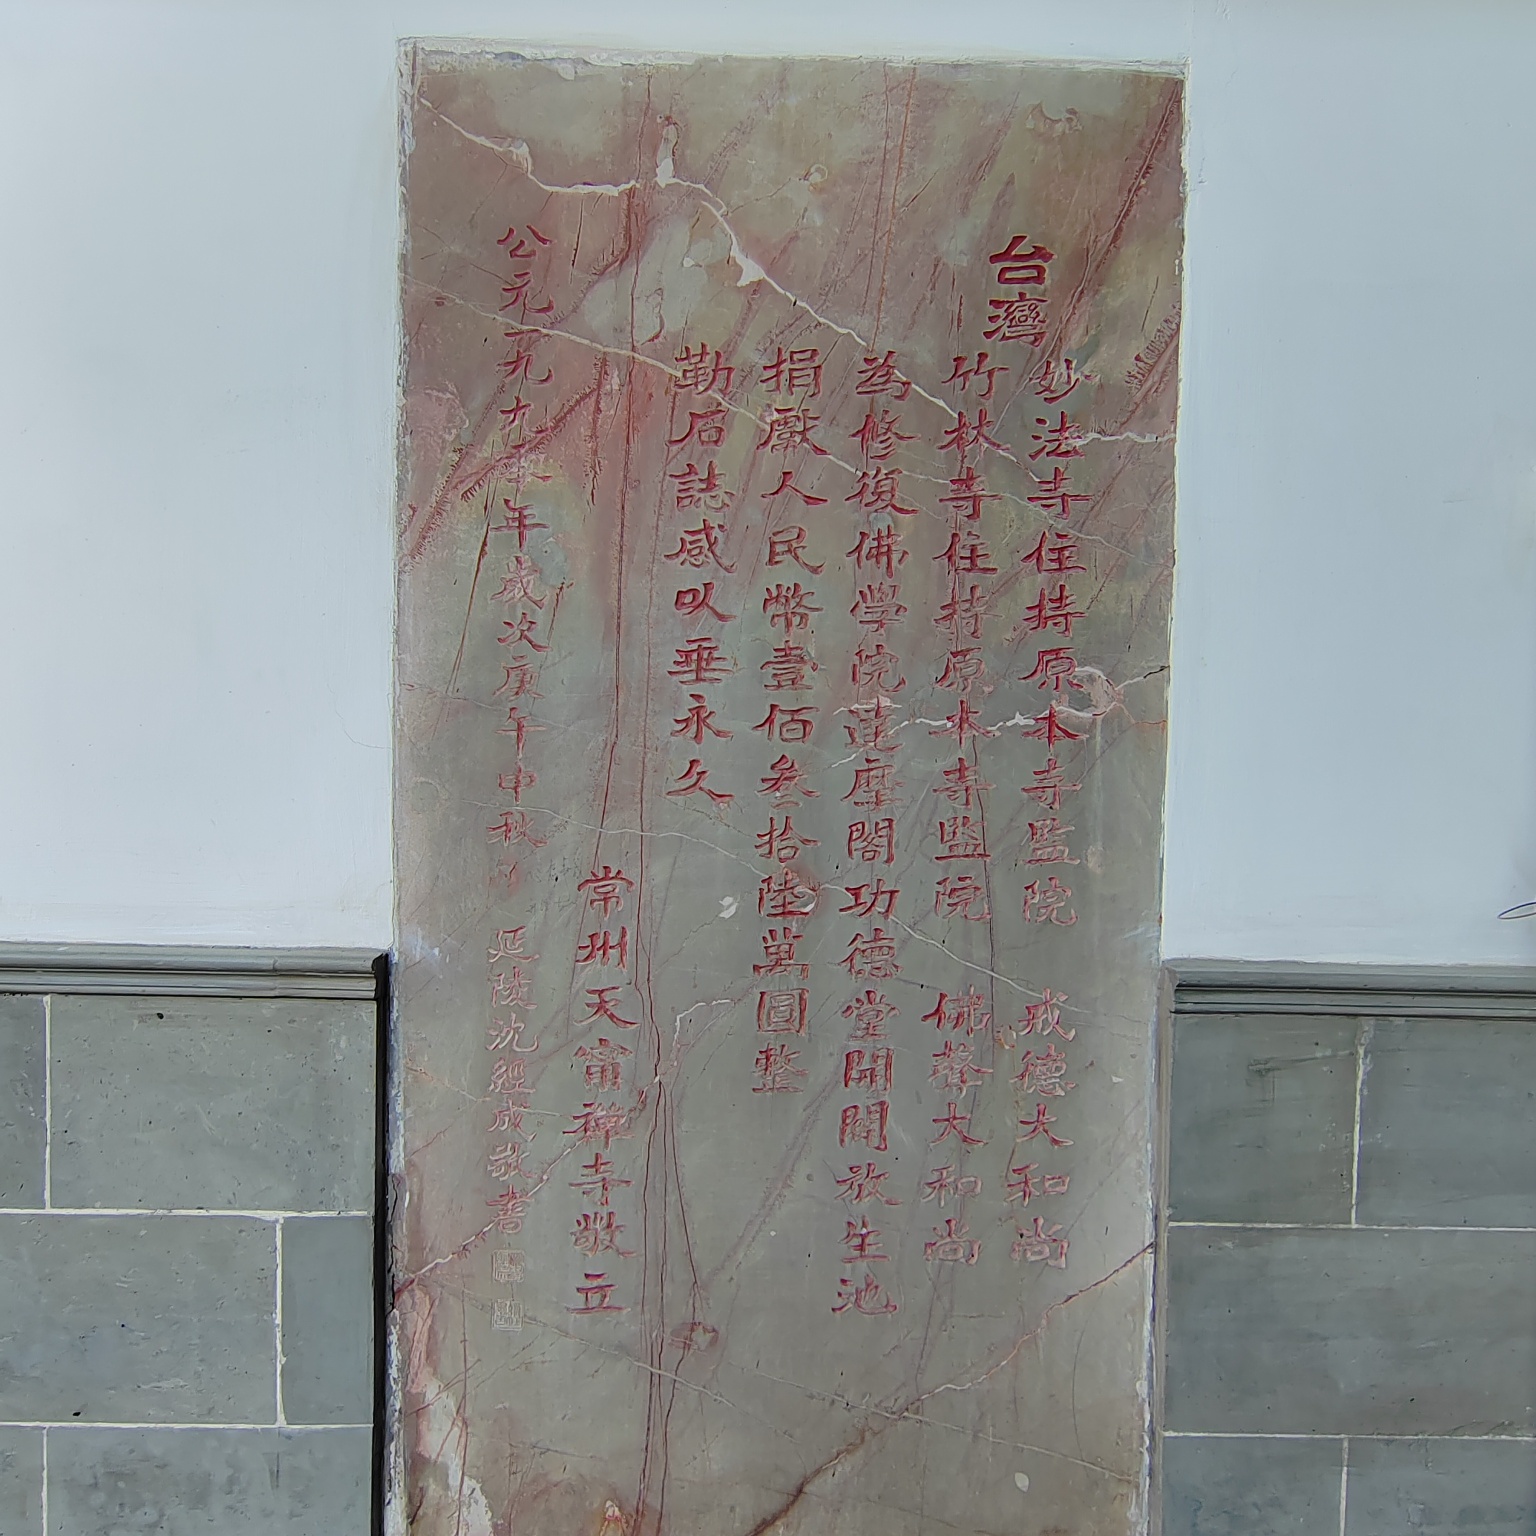 台灣
妙法寺住持原本寺監院 戒德大和尚
竹林寺住持原本寺監院 佛聲大和尚
為修復佛學院達摩閣功德堂開闢放生池
捐獻人民幣壹佰叁拾陸萬圓整
勒石誌感以垂永久
常州天甯禪寺敬立
公元一九九年歲次庚午中秋 延陵沈經成敬書